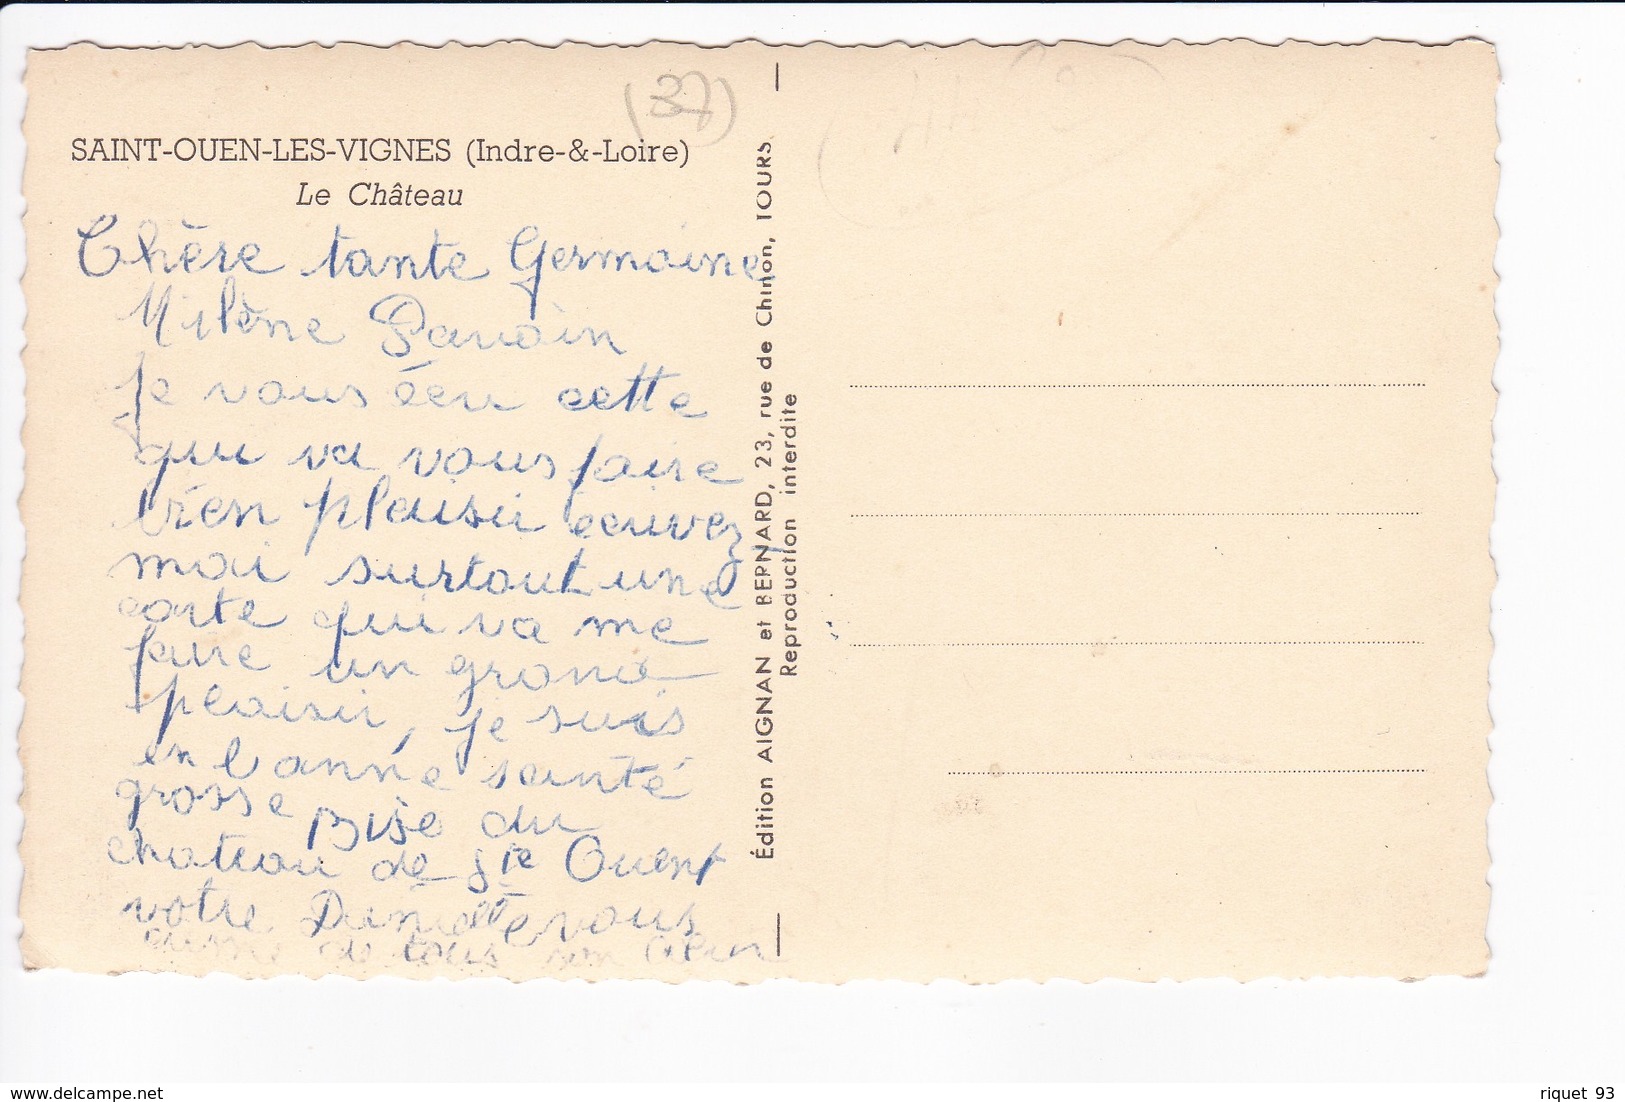 (37)
SAINT-OUEN-LES-VIGNES (Indre-&-Loire)
Le Château
Chère tante Germaine
Milène
je vous écri cette
qui va vous faire
bien plaisir ecrivez
moi surtout une
carte qui va me
faire un grand
plaisir, je suis
en bonne santé
grosse bise du
chateau de Ste Ouent
votre Danielle vous
de tous son
Édition AIGNAN et BERNARD, 23, rue de Chinon, TOURS
Reproduction interdite
riquet 93